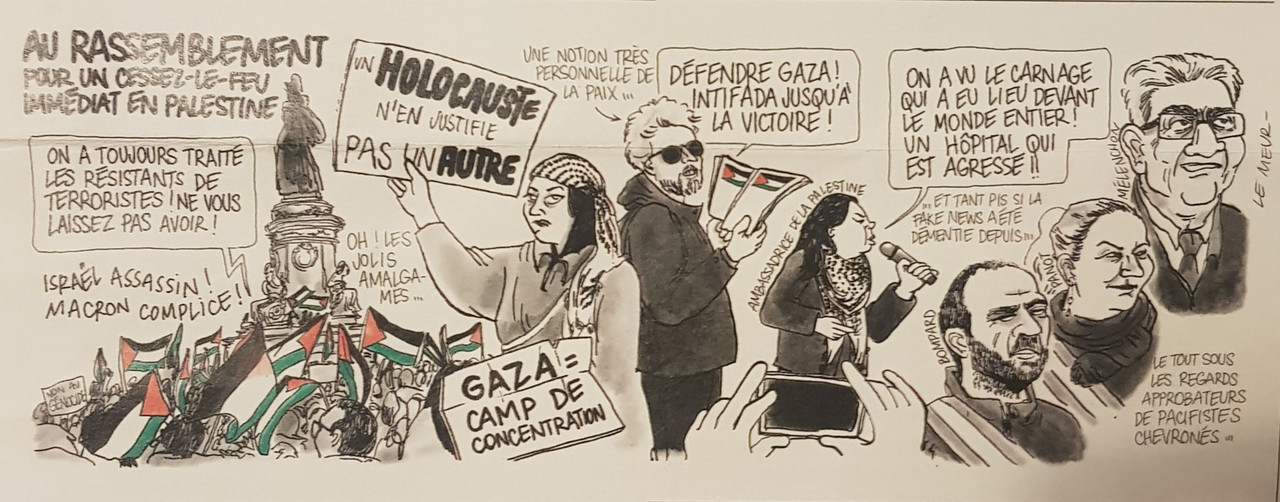 AU RASSEMBLEMENT
POUR UN CESSEZ-LE-FEU
IMMÉDIAT EN PALESTINE
ON A TOUJOURS TRAITÉ
LES RÉSISTANTS DE
TERRORISTES ! NE VOUS
LAISSEZ PAS AVOIR !
ISRAËL ASSASSIN !
MACRON COMPLICE !
NON AU
GÉNOCIDE
UN HOLOCAUSTE
N'EN JUSTIFIE
PAS UN AUTRE
OH ! LES
JOLIS
AMALGA-
MES ...
GAZA =
CAMP DE
CONCENTRATION
UNE NOTION TRÈS
PERSONNELLE DE
LA PAIX ...
DÉFENDRE GAZA !
INTIFADA JUSQU'À
LA VICTOIRE !
AMBASSADRICE DE LA PALESTINE
ON A VU LE CARNAGE
QUI A EU LIEU DEVANT
LE MONDE ENTIER !
UN HÔPITAL QUI
EST AGRESSÉ !!
... ET TANT PIS SI LA
FAKE NEWS A ÉTÉ
DÉMENTIE DEPUIS ...
BOMPARD
PANOT
MÉLENCHON
LE TOUT SOUS
LES REGARDS
APPROBATEURS
DE PACIFISTES
CHEVRONÉS ...
LE MEUR -